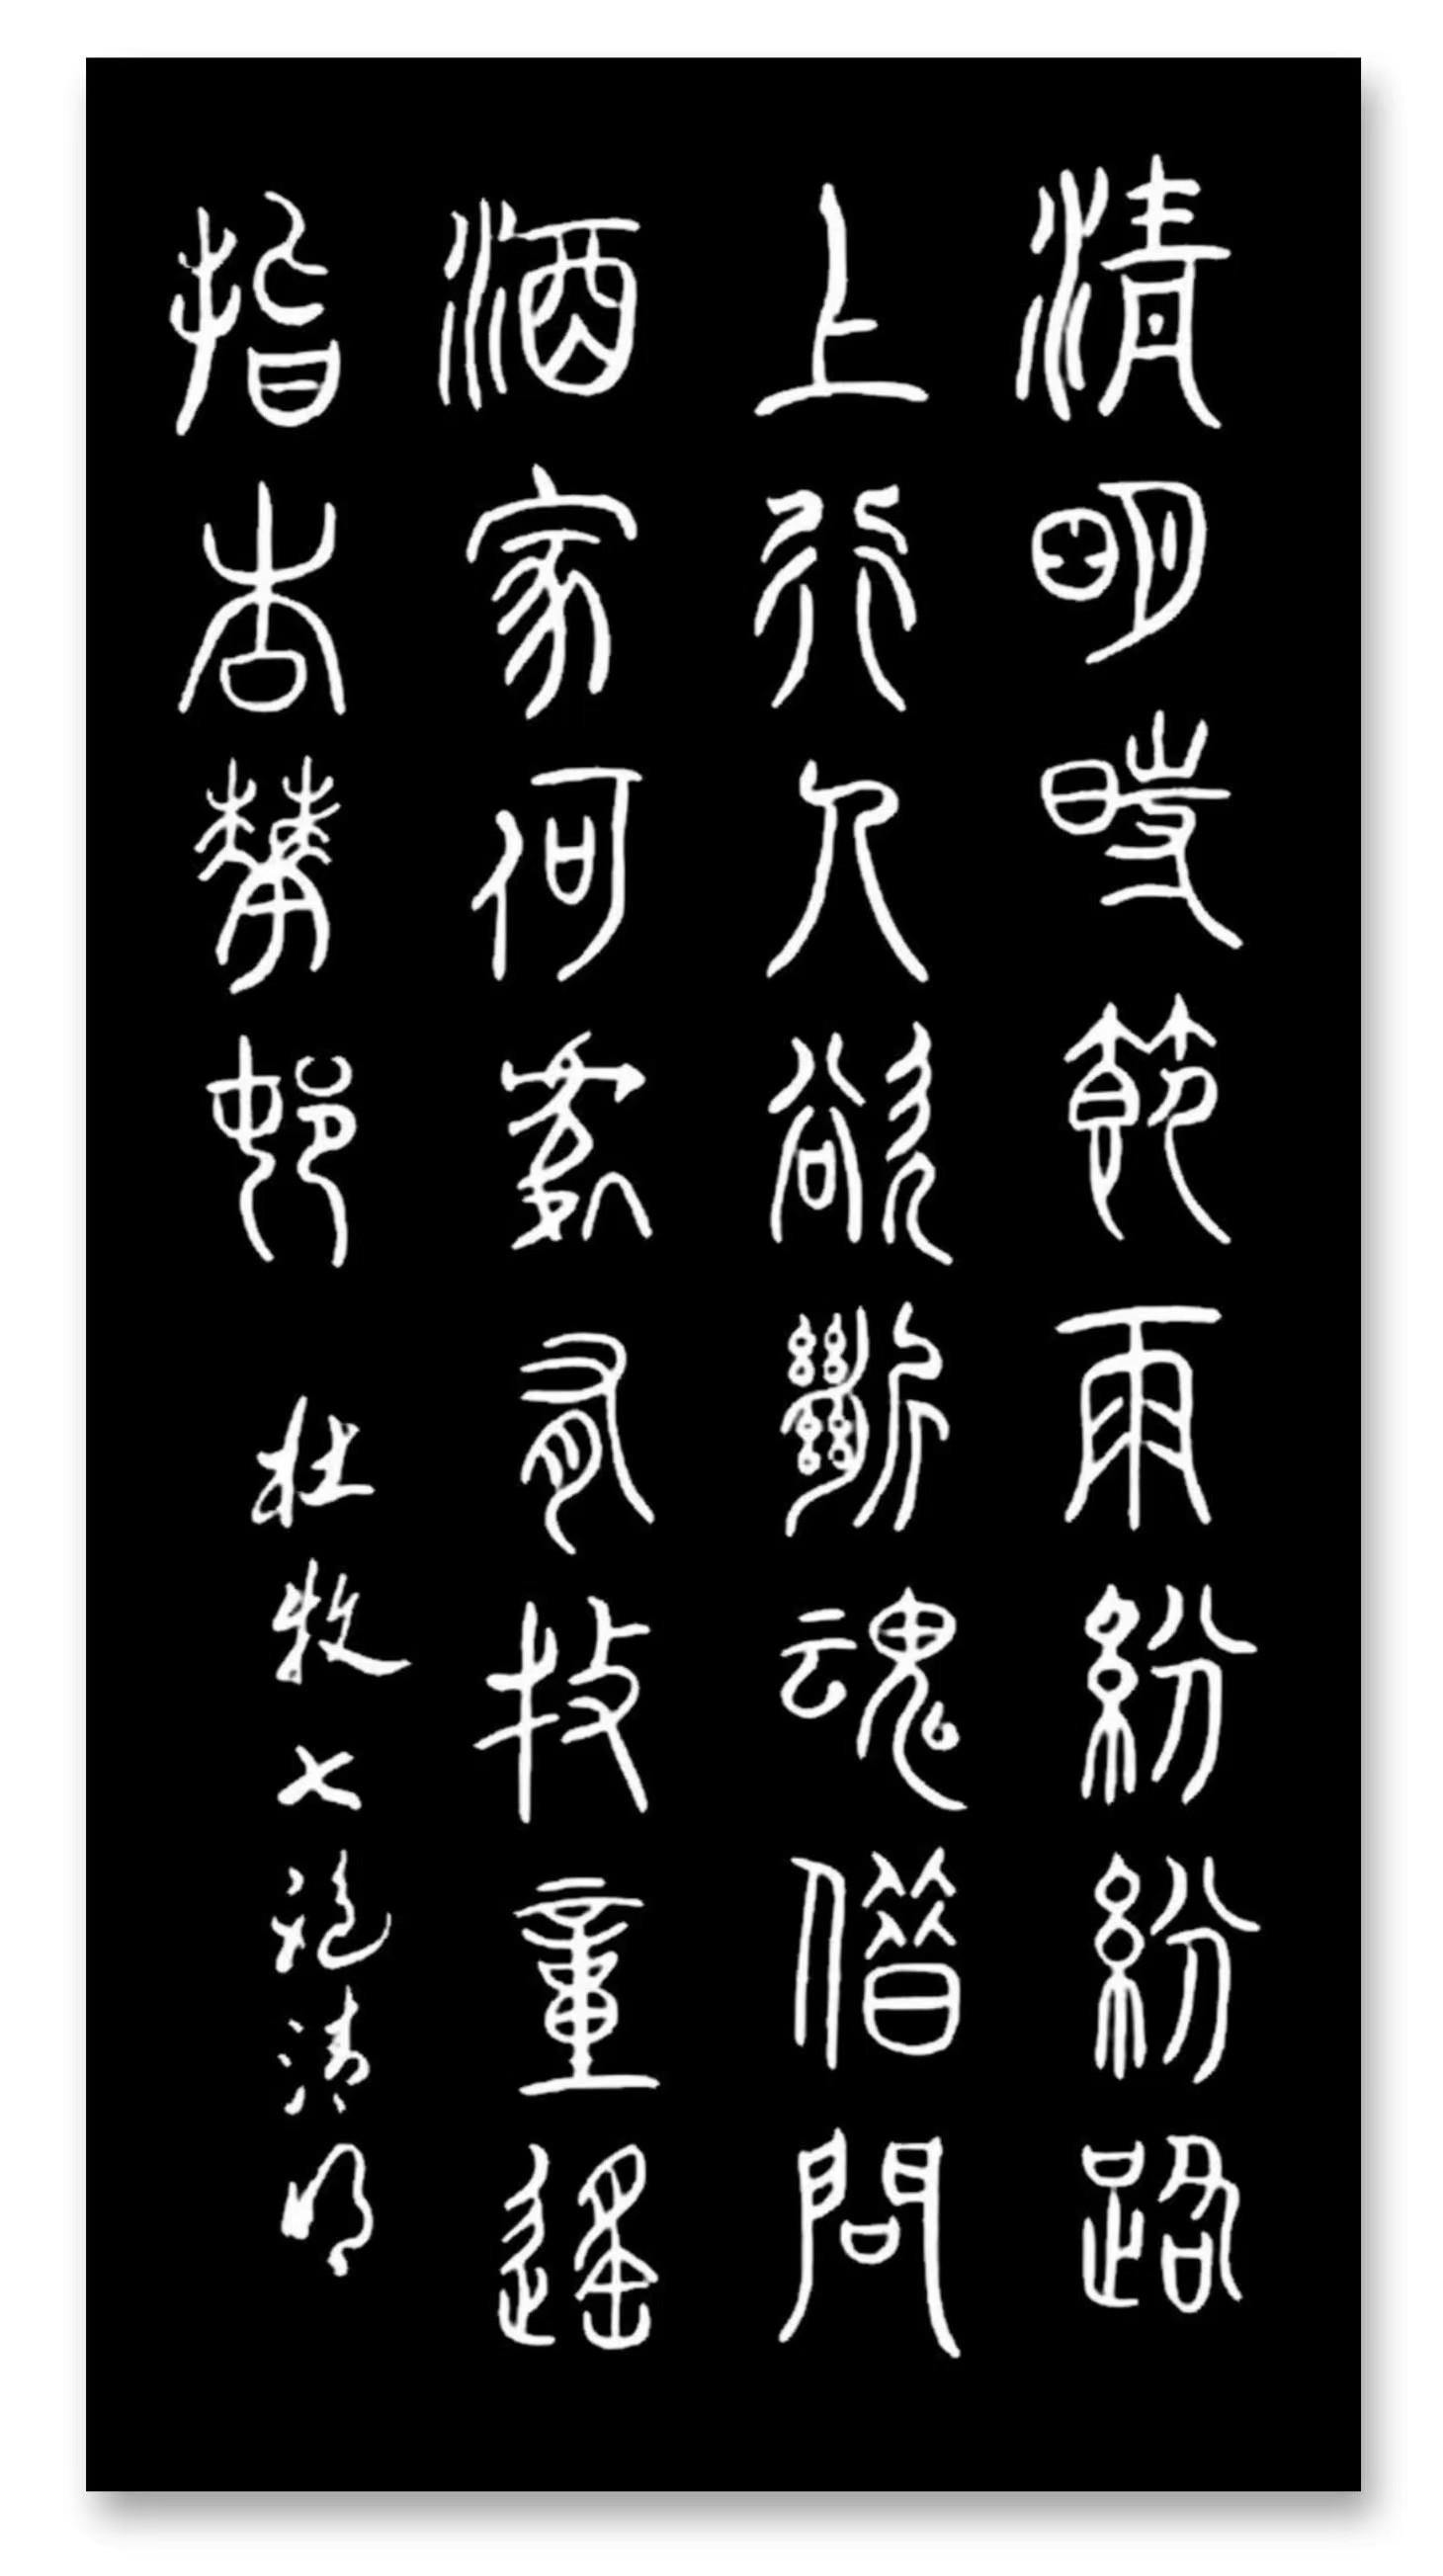 清明時節雨紛紛路
上行人欲斷魂借問
酒家何處有牧童遙
指杏花村 杜牧七絕清明